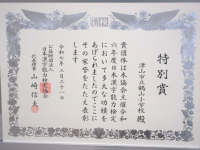 特別賞
津山市立鶴山小学校 殿
貴団体は本協会主催令和
六年度日本漢字能力検定
において多大な功績を
あげられましたのでここに
その栄誉をたたえ表彰
します
令和七年三月二十一日
公益財団法人
日本漢字能力検定協会
代表理事 山崎信夫